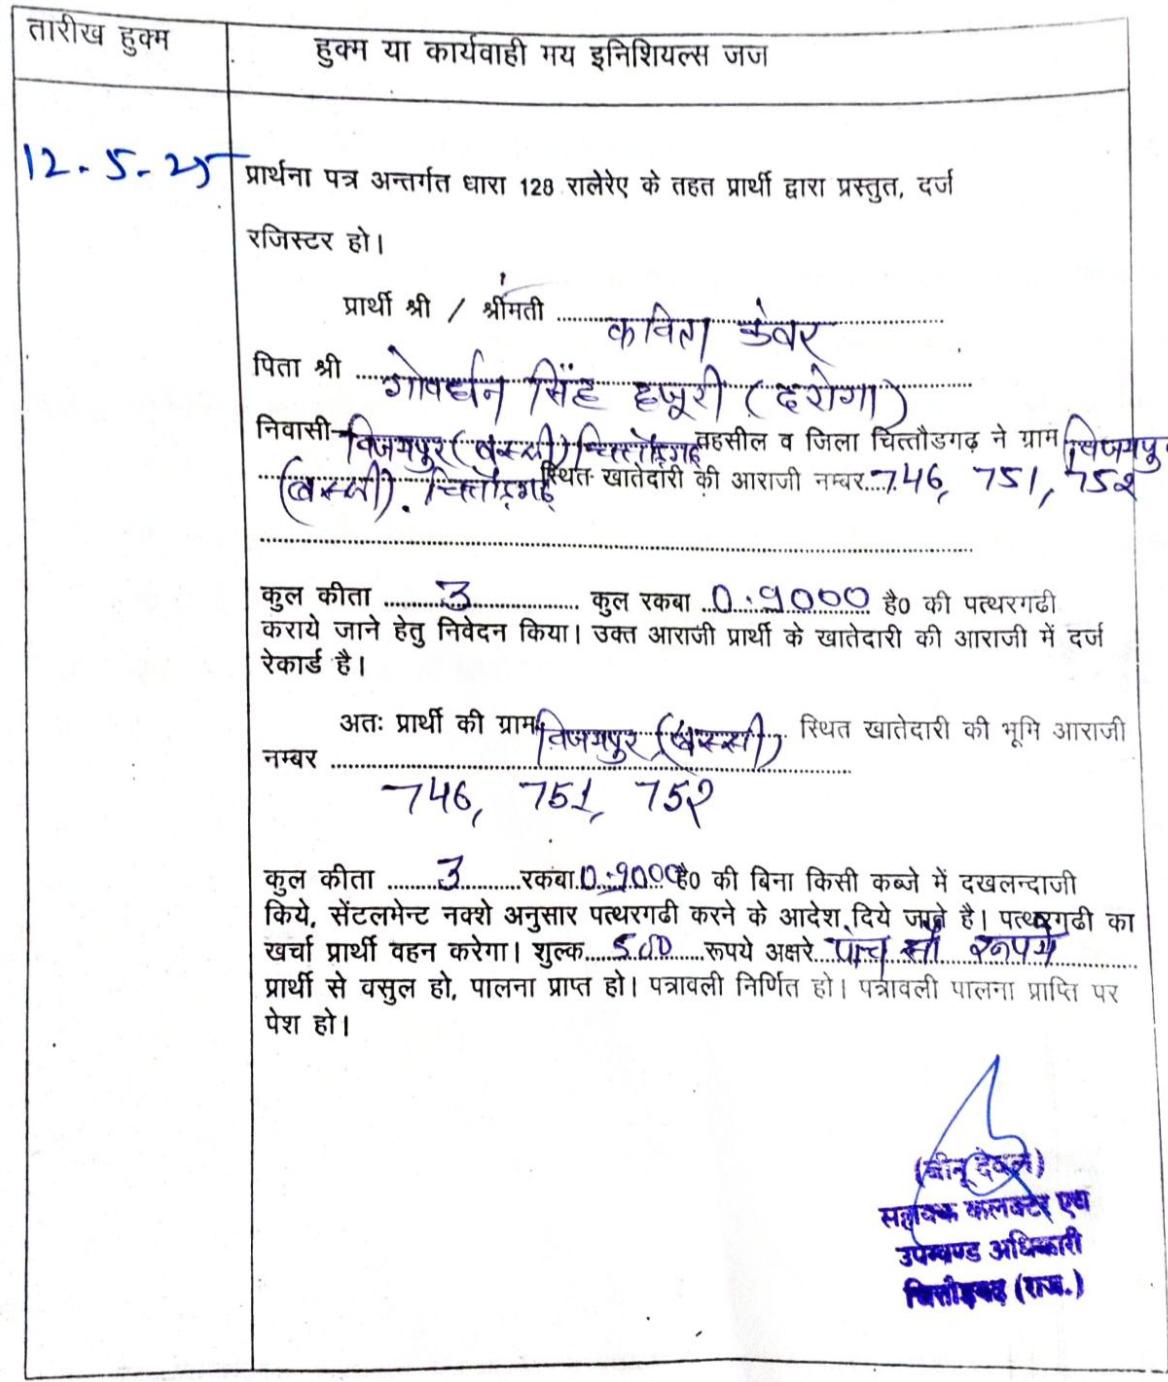 तारीख हुक्म
हुक्म या कार्यवाही मय इनिशियल्स जज
12-5-25
प्रार्थना पत्र अन्तर्गत धारा 128 रालेरेए के तहत प्रार्थी द्वारा प्रस्तुत, दर्ज
रजिस्टर हो।
प्रार्थी श्री / श्रीमती कविता कंवर
पिता श्री गोवर्धन सिंह हजूरी (दरोगा)
निवासी विजयपुर (बस्सी) चित्तौड़गढ़ तहसील व जिला चित्तौडगढ़ ने ग्राम विजयपुर
(बस्सी). चित्तौड़गढ़ स्थित खातेदारी की आराजी नम्बर 746, 751, 752
कुल कीता 3 कुल रकबा 0.9000 है0 की पत्थरगढी
कराये जाने हेतु निवेदन किया। उक्त आराजी प्रार्थी के खातेदारी की आराजी में दर्ज
रेकार्ड है।
अतः प्रार्थी की ग्राम विजयपुर (बस्सी) स्थित खातेदारी की भूमि आराजी
नम्बर
746, 751, 752
कुल कीता 3 रकबा 0.9000 है0 की बिना किसी कब्जे में दखलन्दाजी
किये, सेंटलमेन्ट नक्शे अनुसार पत्थरगढी करने के आदेश दिये जाते है। पत्थरगढी का
खर्चा प्रार्थी वहन करेगा। शुल्क 500 रूपये अक्षरे पांच सौ रूपये
प्रार्थी से वसुल हो, पालना प्राप्त हो। पत्रावली निर्णित हो। पत्रावली पालना प्राप्ति पर
पेश हो।
(बीनू देवल)
सहायक कलक्टर एवं
उपखण्ड अधिकारी
चित्तौड़गढ़ (राज.)